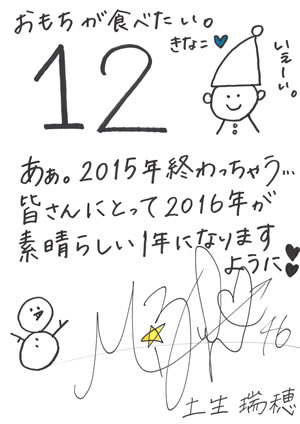 おもちが食べたい。
きなこ♥
いぇーい。
12
あぁ。2015年終わっちゃう...
皆さんにとって2016年が
素晴らしい1年になります
ように♥♥
46
土生 瑞穂